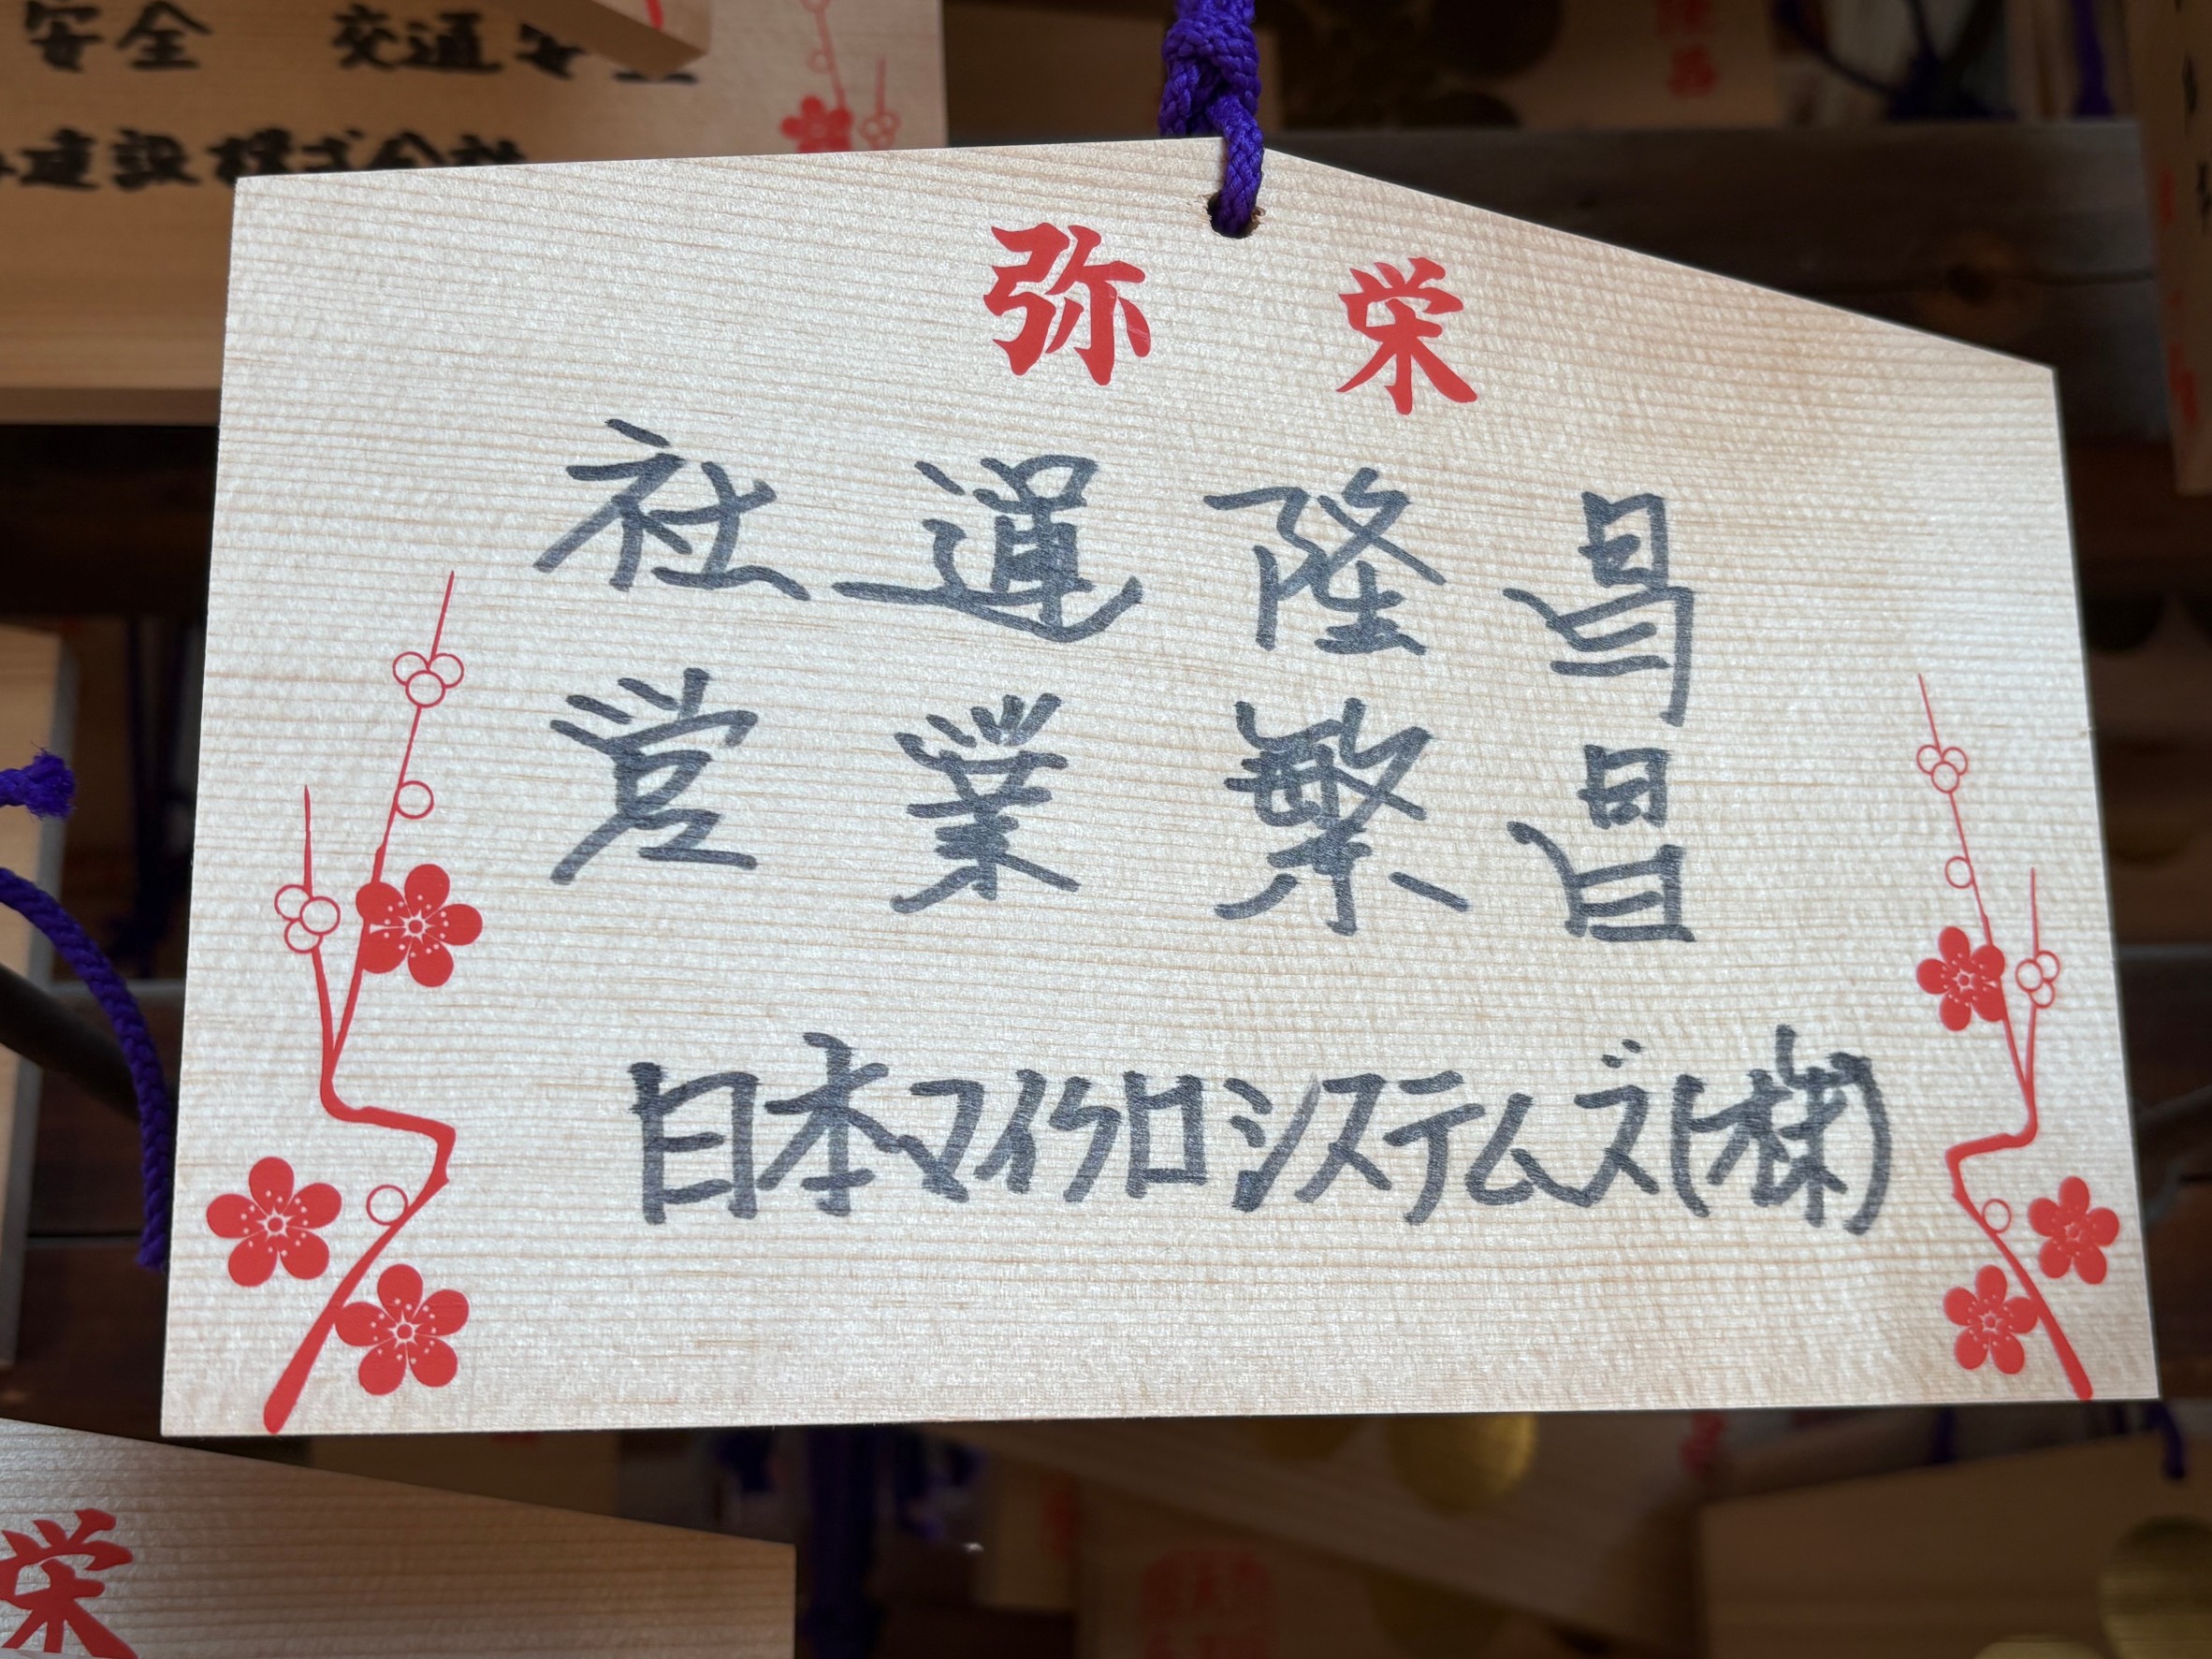 安全 交通安全
建設株式会社
弥栄
社運隆昌
営業繁昌
日本マイクロシステムズ(株)
栄